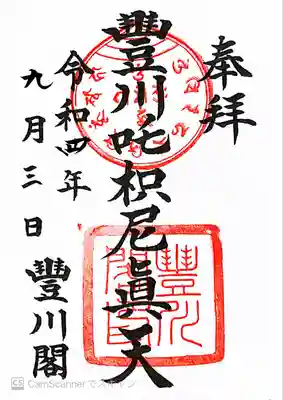 奉拝
豐川吒枳尼眞天
令和四年
九月三日
豐川閣
CS CamScannerでスキャン